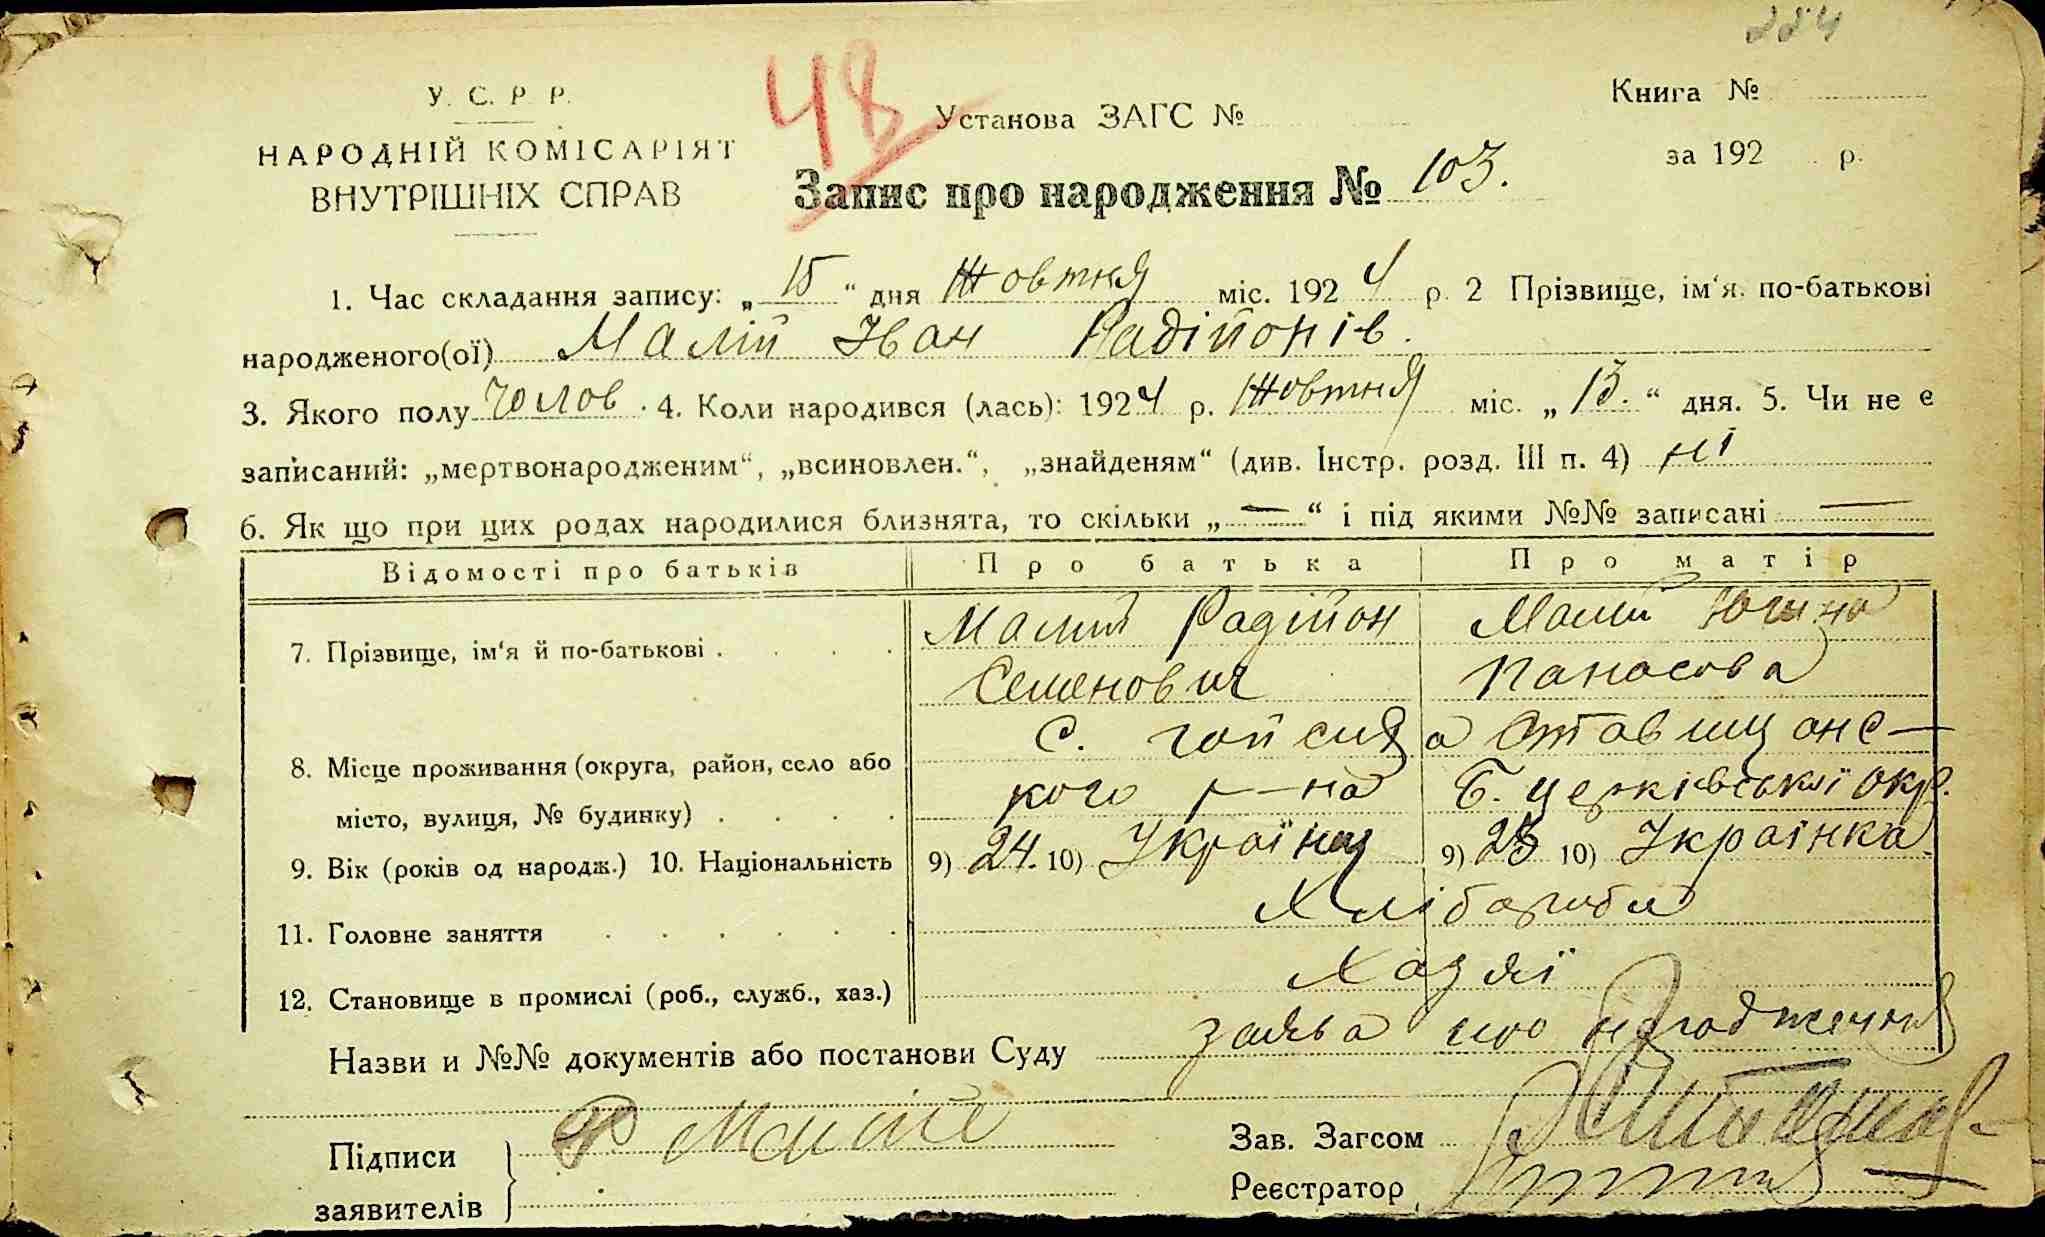 284
У. С. Р. Р.
НАРОДНІЙ КОМІСАРІЯТ
ВНУТРІШНІХ СПРАВ
48
Установа ЗАГС №
Книга №
за 192 р.
Запис про народження № 103.
1. Час складання запису: „15“ дня Жовтня міс. 1924 р. 2 Прізвище, ім‘я, по-батькові
народженого(ої) Малій Іван Радійонів.
3. Якого полу чолов. 4. Коли народився (лась): 1924 р. Жовтня міс. „13.“ дня. 5. Чи не є
записаний: „мертвонародженим“, „всиновлен.“, „знайденям“ (див. Інстр. розд. III п. 4) ні
6. Як що при цих родах народилися близнята, то скільки „—“ і під якими №№ записані —
Відомості про батьків Про батька Про матір
7. Прізвище, ім‘я й по-батькові . . . . Малий Радійон Малий
Семенович Панасова
8. Місце проживання (округа, район, село або С. Ставищанс-
місто, вулиця, № будинку) . . . . кого р-на Б. церківської окр.
9. Вік (років од народж.) 10. Національність 9) 24. 10) Українец 9) 23 10) Українка
11. Головне заняття . . . . . . Хлібороби
12. Становище в промислі (роб., служб., хаз.) Хазяї
Назви и №№ документів або постанови Суду заява про народження
Підписи
заявителів
Р Малий
Зав. Загсом
Реєстратор